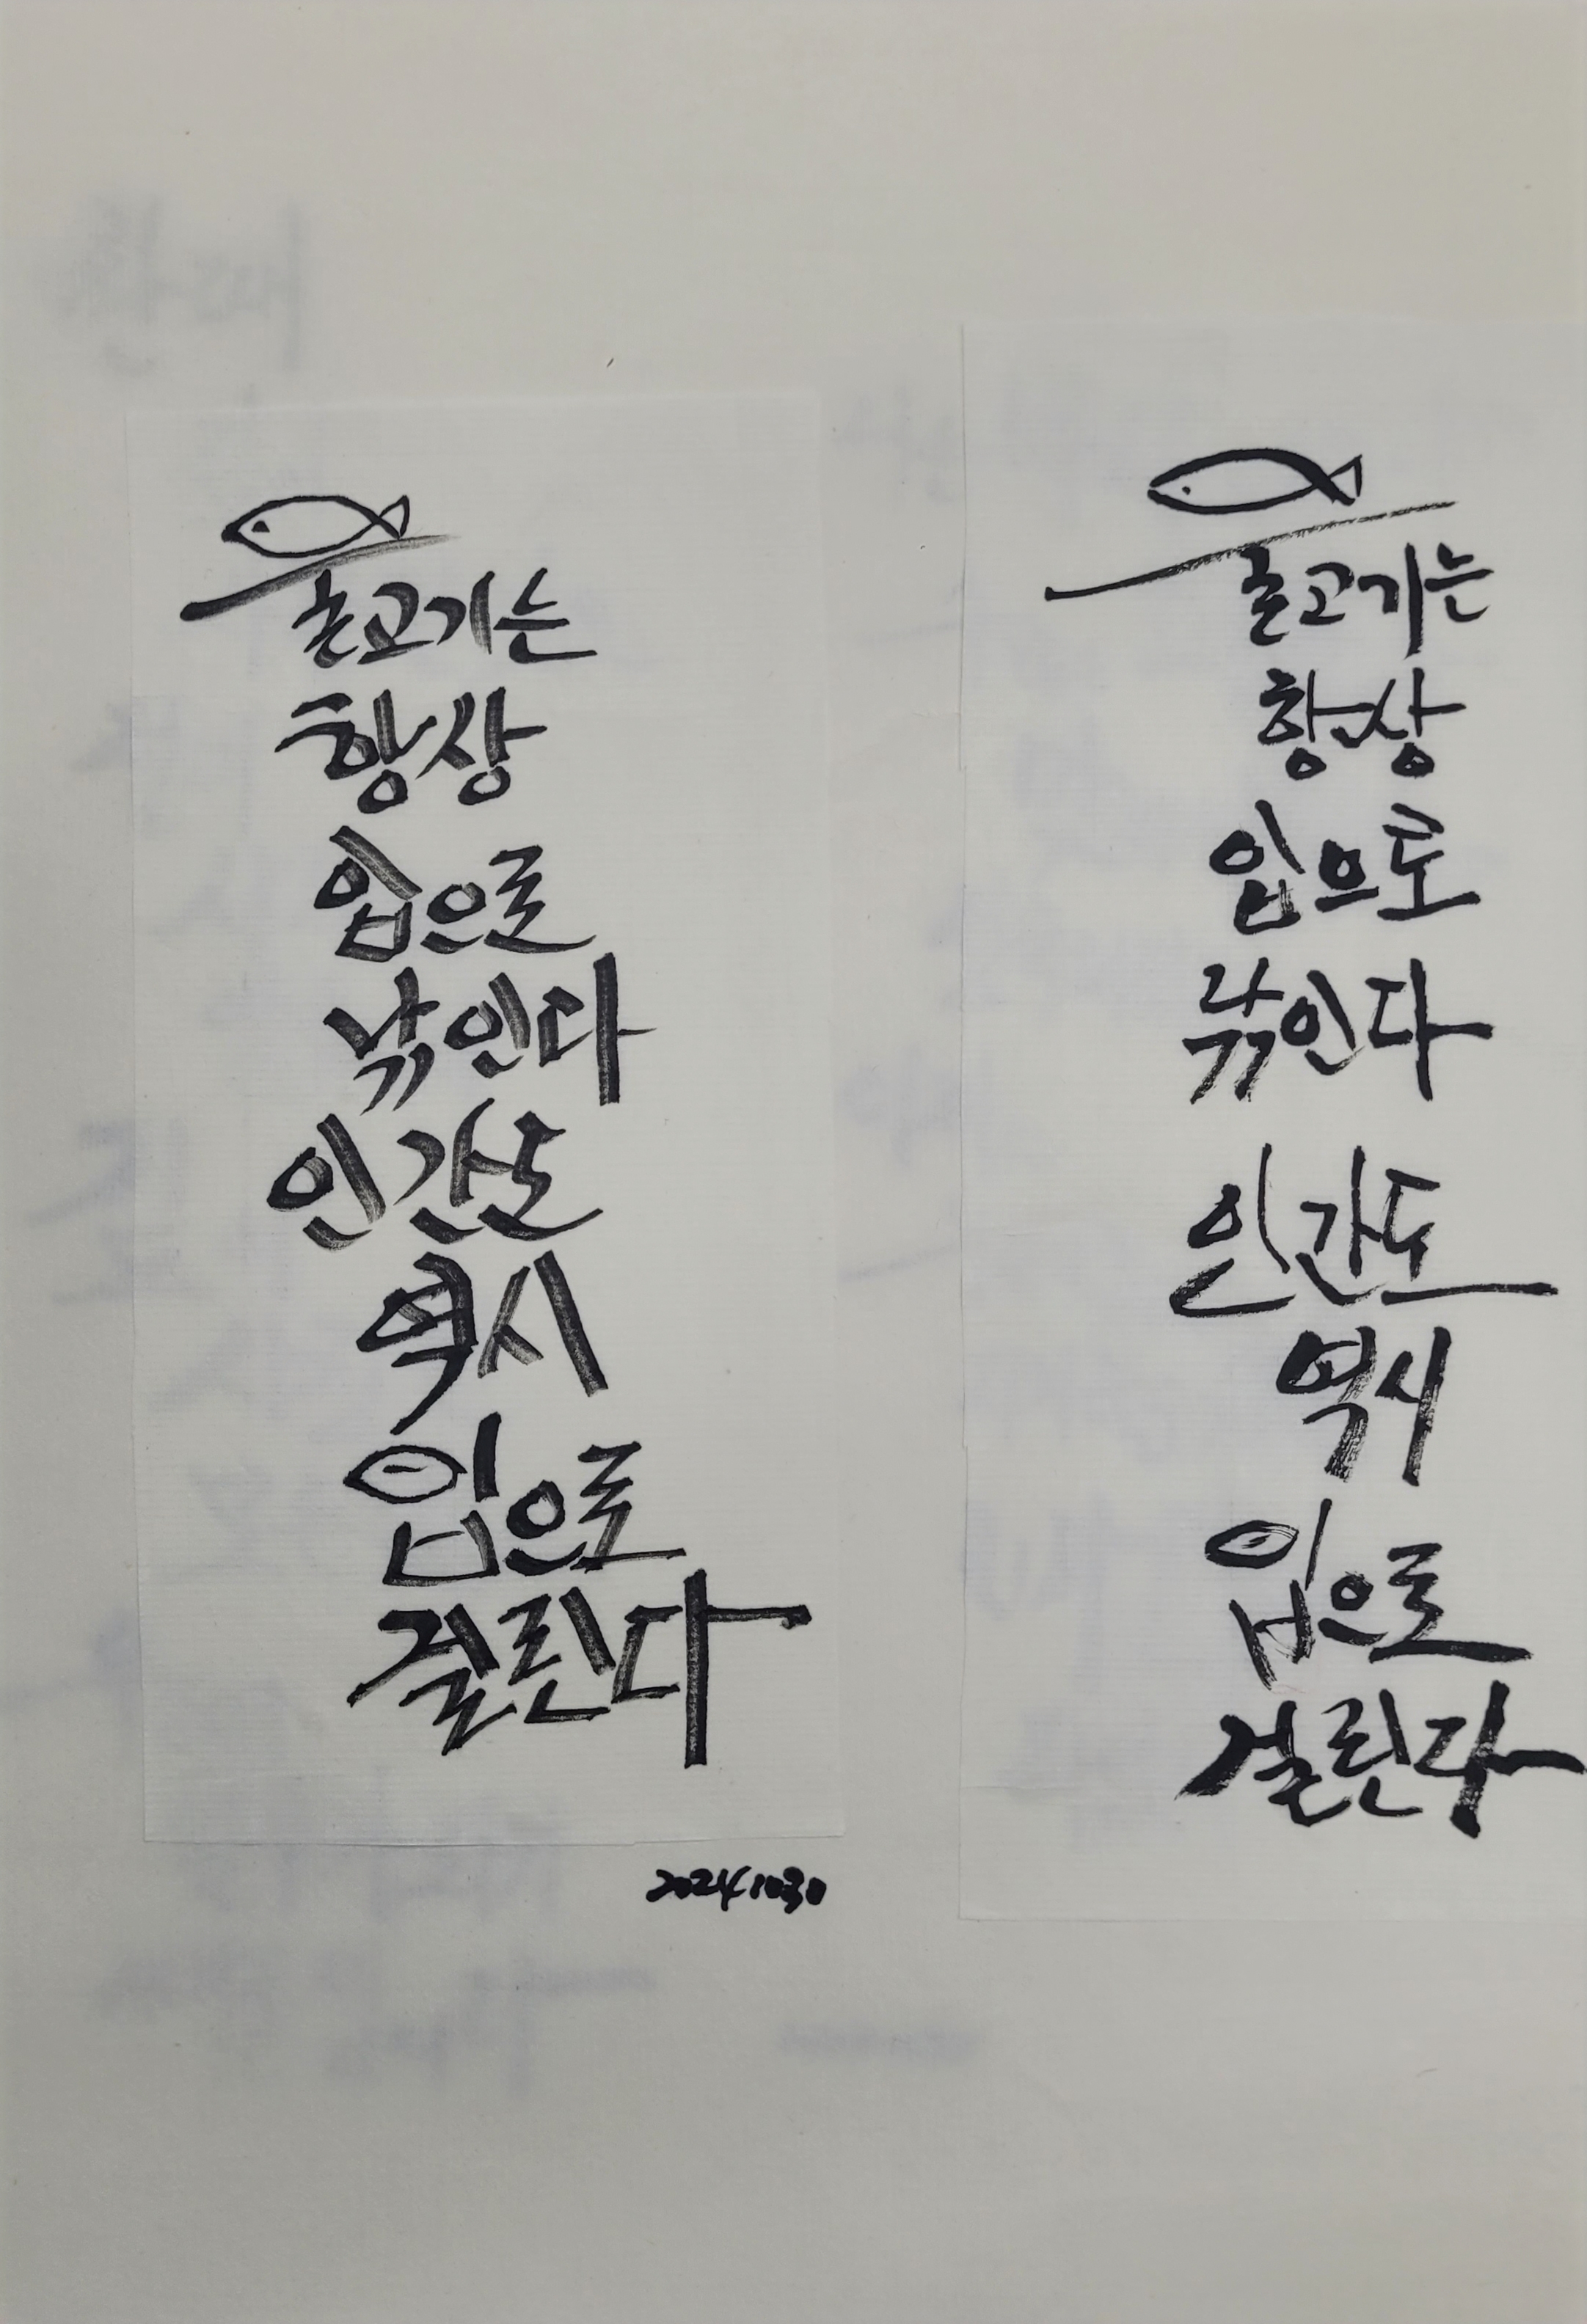 물고기는
항상
입으로
낚인다
인간도
역시
입으로
걸린다
20241030
물고기는
항상
입으로
낚인다
인간도
역시
입으로
걸린다